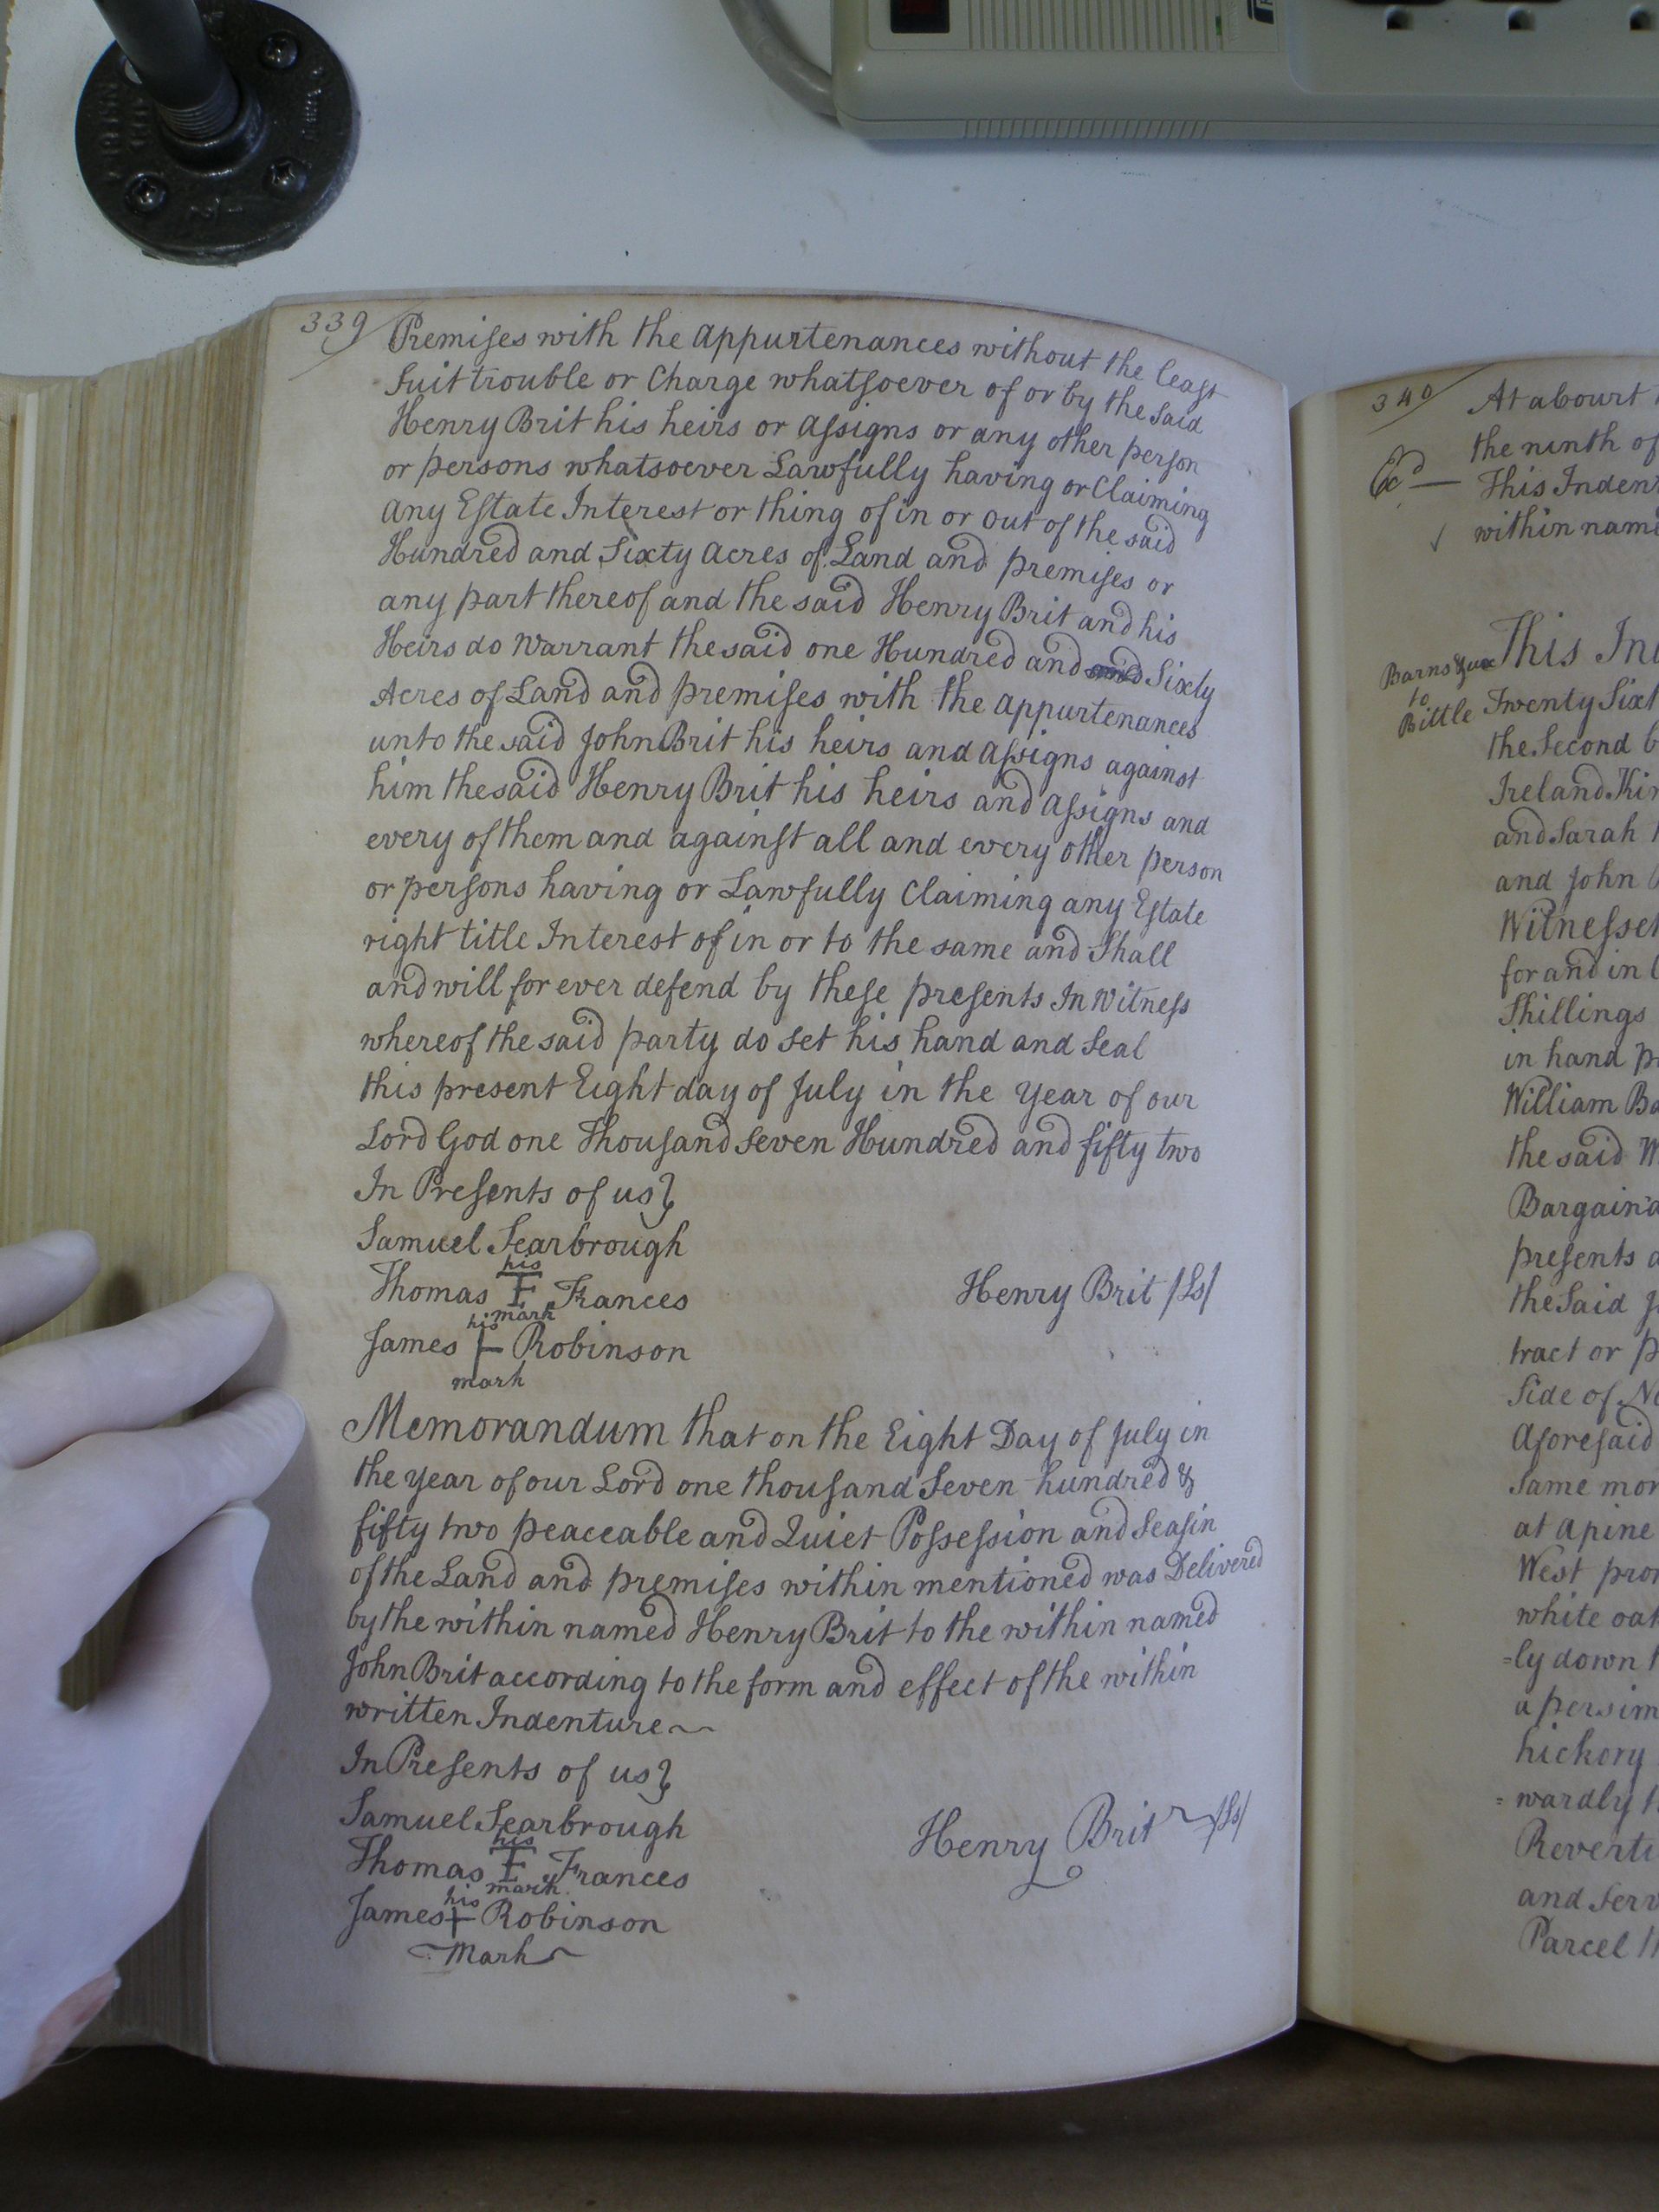 339
Premises with the Appurtenances without the least
Suit trouble or Charge whatsoever of or by the Said
Henry Brit his heirs or Assigns or any other person
or persons whatsoever Lawfully having or Claiming
any Estate Interest or thing of in or out of the said
Hundred and Sixty Acres of Land and premises or
any part thereof and the said Henry Brit and his
Heirs do Warrant the said one Hundred and Sixty
Acres of Land and premises with the Appurtenances
unto the said John Brit his heirs and Assigns against
him the said Henry Brit his heirs and Assigns and
every of them and against all and every other person
or persons having or Lawfully Claiming any Estate
right title Interest of in or to the same and Shall
and will for ever defend by these presents In Witness
whereof the said party do set his hand and Seal
this present Eight day of July in the year of our
Lord God one Thousand Seven Hundred and fifty two
In Presents of us}
Samuel Searbrough
his
Thomas F Frances Henry Brit /Ls/
mark
his
James + Robinson
mark
Memorandum that on the Eight Day of July in
the year of our Lord one thousand Seven hundred &
fifty two peaceable and Quiet Possession and Seasin
of the Land and premises within mentioned was Delivered
by the within named Henry Brit to the within named
John Brit according to the form and effect of the within
written Indenture~
In Presents of us}
Samuel Searbrough
his
Thomas F Frances Henry Brit /Ls/
mark
his
James + Robinson
Mark
340
At a bourt
the ninth of
This Inden
within nam
This In
Barns & ux
to
Bittle
Twenty Sixt
the Second
Ireland Kin
and Sarah
and John
Witnesse
for and in
Shillings
in hand p
William Ba
the said W
Bargain'd
presents a
the Said J
tract or p
Side of No
Aforesaid
Same mor
at a pine
West pro
white oak
=ly down t
a persim
hickory
=wardly t
Reverti
and Serv
Parcel